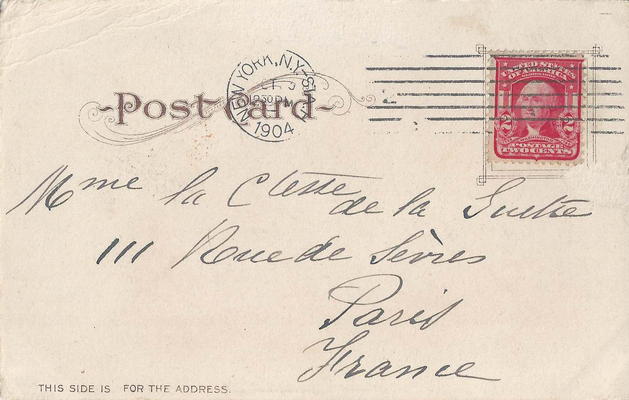 Post Card
NEW YORK, N.Y.
1904
UNITED STATES
OF AMERICA
2 2
POSTAGE
TWO CENTS
Mme la Ctesse
de la
111 Rue de Sèvres
Paris
France
THIS SIDE IS FOR THE ADDRESS.